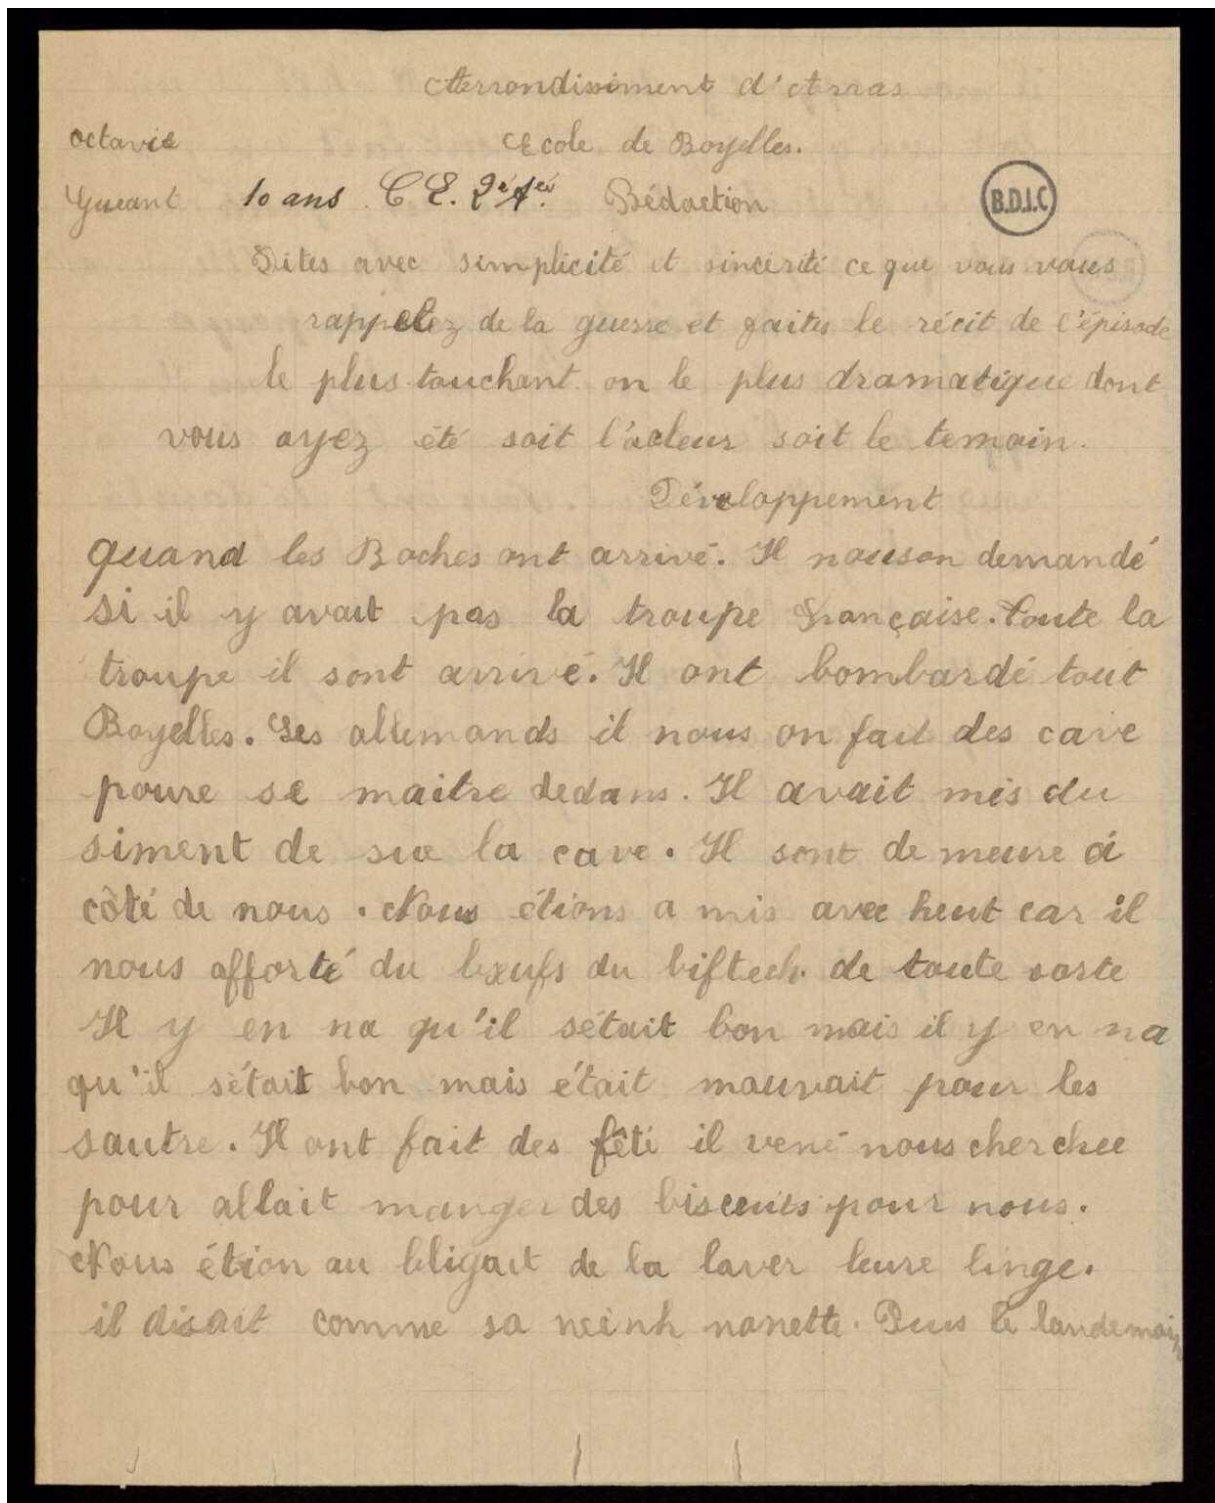 Arrondissiment d'Arras
octavie Ecole de Boyelles.
Gueant 10 ans C E. 2é A Rédaction B.D.I.C
Dites avec simplicité et sincérité ce que vous vous
rappelez de la guerre et faites le récit de l'épisode
le plus touchant ou le plus dramatique dont
vous ayez été soit l'acteur soit le temoin.
Développement
quand les Boches ont arrivé. Il nouson demandé
si il y avait pas la troupe Française. Toute la
troupe il sont arrivé. Il ont bombardé tout
Boyelles. Les allemands il nous on fait des cave
poure se maitre dedans. Il avait mis du
siment de sue la cave. Il sont de meure à
côté de nous. Nous étions a mis avec heut car il
nous apporté du bœufs du biftech de toute sorte
Il y en na qu'il sétait bon mais il y en na
qu'il sétait bon mais était mauvait pour les
sautre. Il ont fait des fêti il vené nous cherchee
pour allait manger des biscuits pour nous.
Nous étion au bligait de la laver leure linge.
il disait comme sa neinh nanette. Puis le landemain